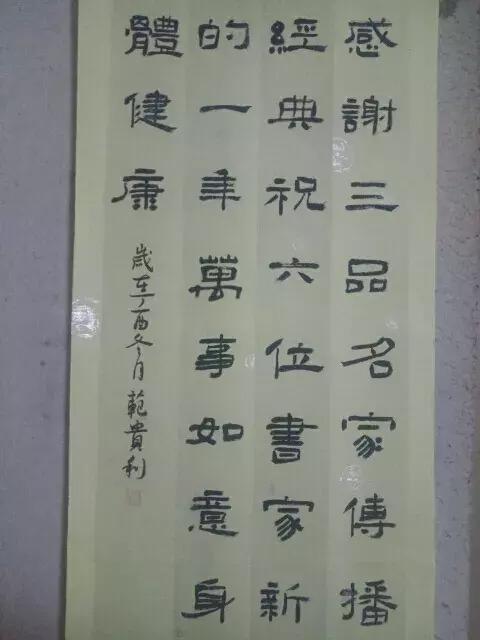 感謝三品名家傳播
經典祝六位書家新
的一年萬事如意身
體健康
歲在丁酉冬月範貴利